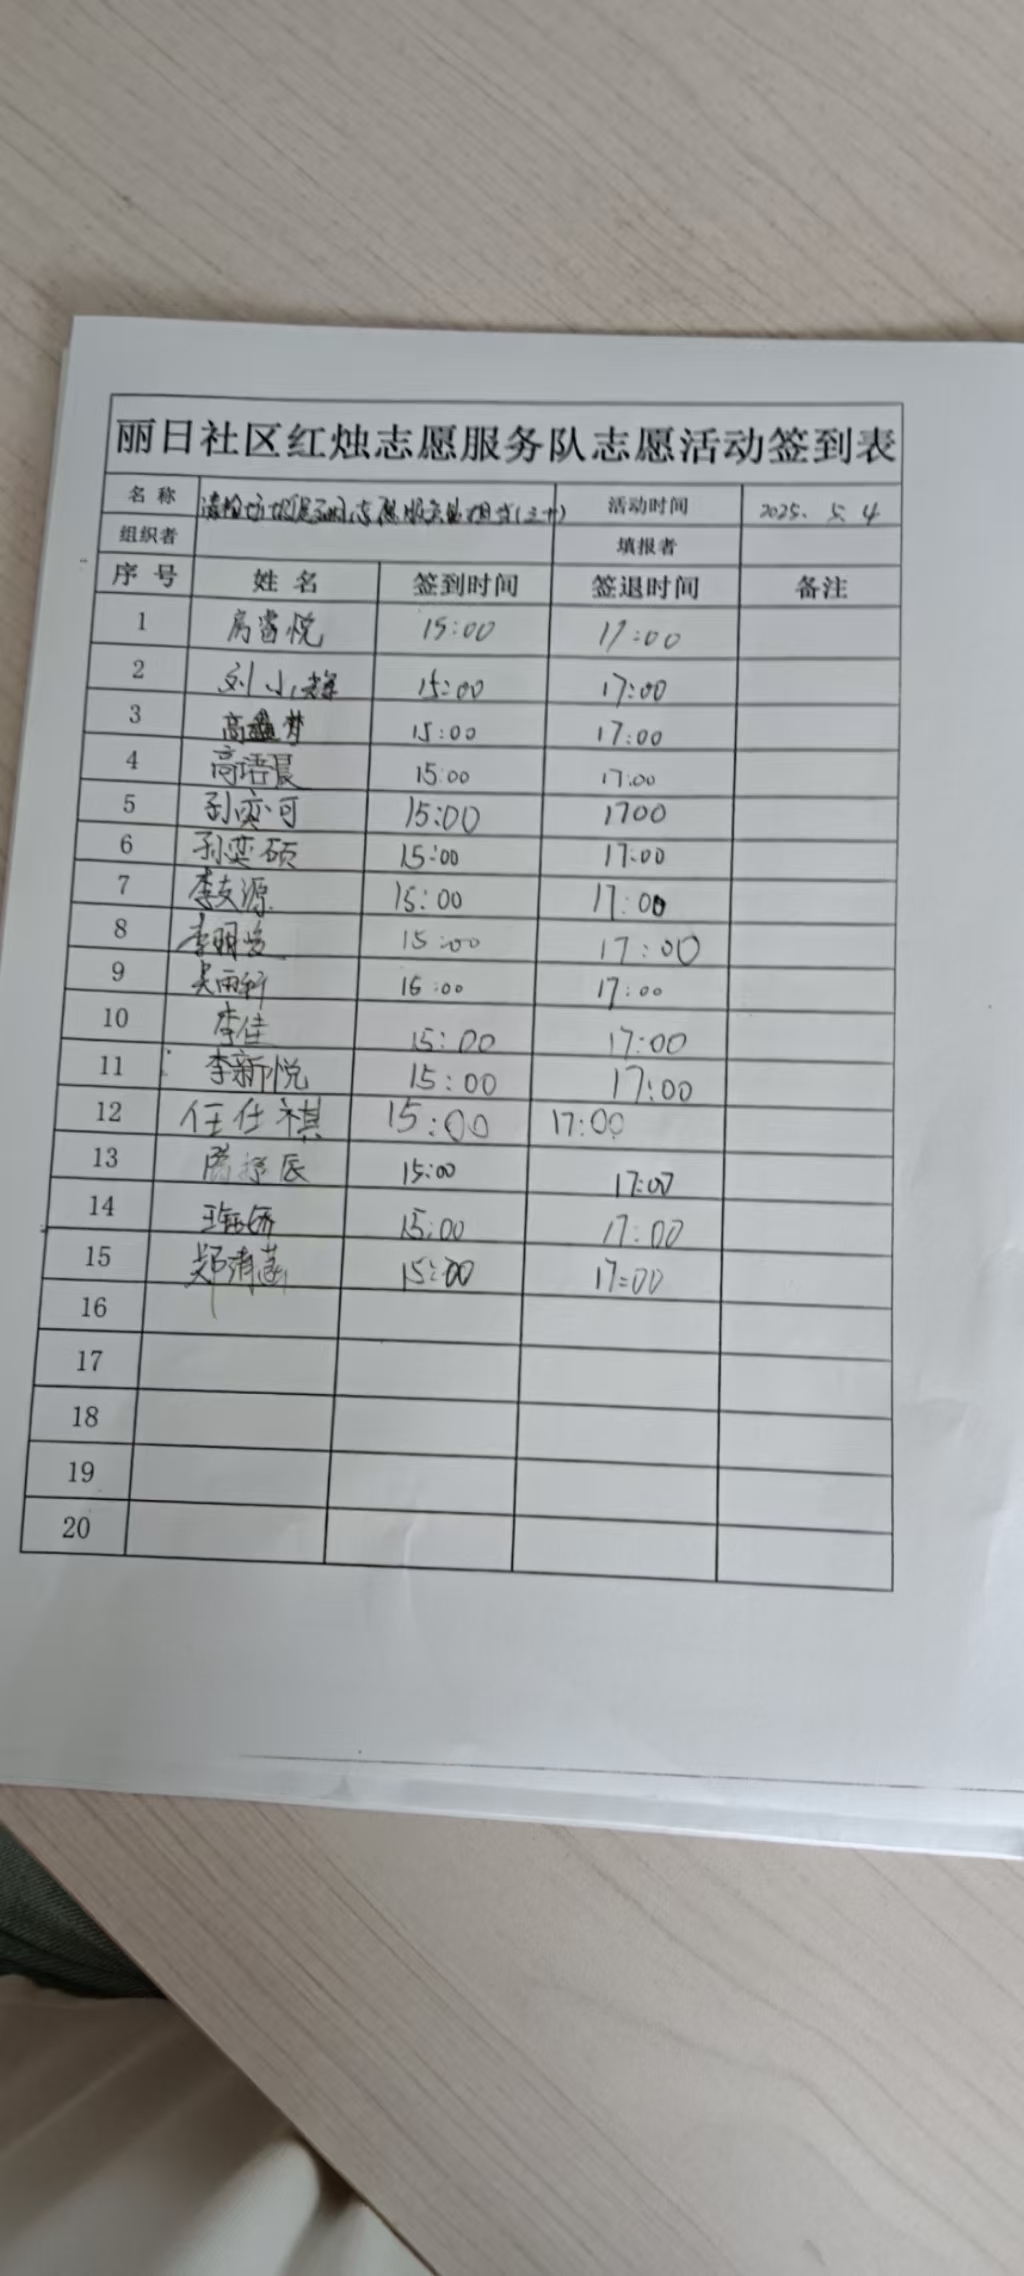 丽日社区红烛志愿服务队志愿活动签到表
名称 志愿服务 (三十) 活动时间 2025. 5. 4
组织者 填报者
序号 姓名 签到时间 签退时间 备注
1 房睿悦 15:00 17:00
2 刘小 15:00 17:00
3 高鑫梦 15:00 17:00
4 高语晨 15:00 17:00
5 孙奕可 15:00 1700
6 孙奕硕 15:00 17:00
7 李友源 15:00 17:00
8 李明 15:00 17:00
9 吴雨轩 16:00 17:00
10 李佳 15:00 17:00
11 李新悦 15:00 17:00
12 任仕祺 15:00 17:00
13 辰 15:00 17:00
14 王钰娇 15:00 17:00
15 郑清菡 15:00 17:00
16
17
18
19
20